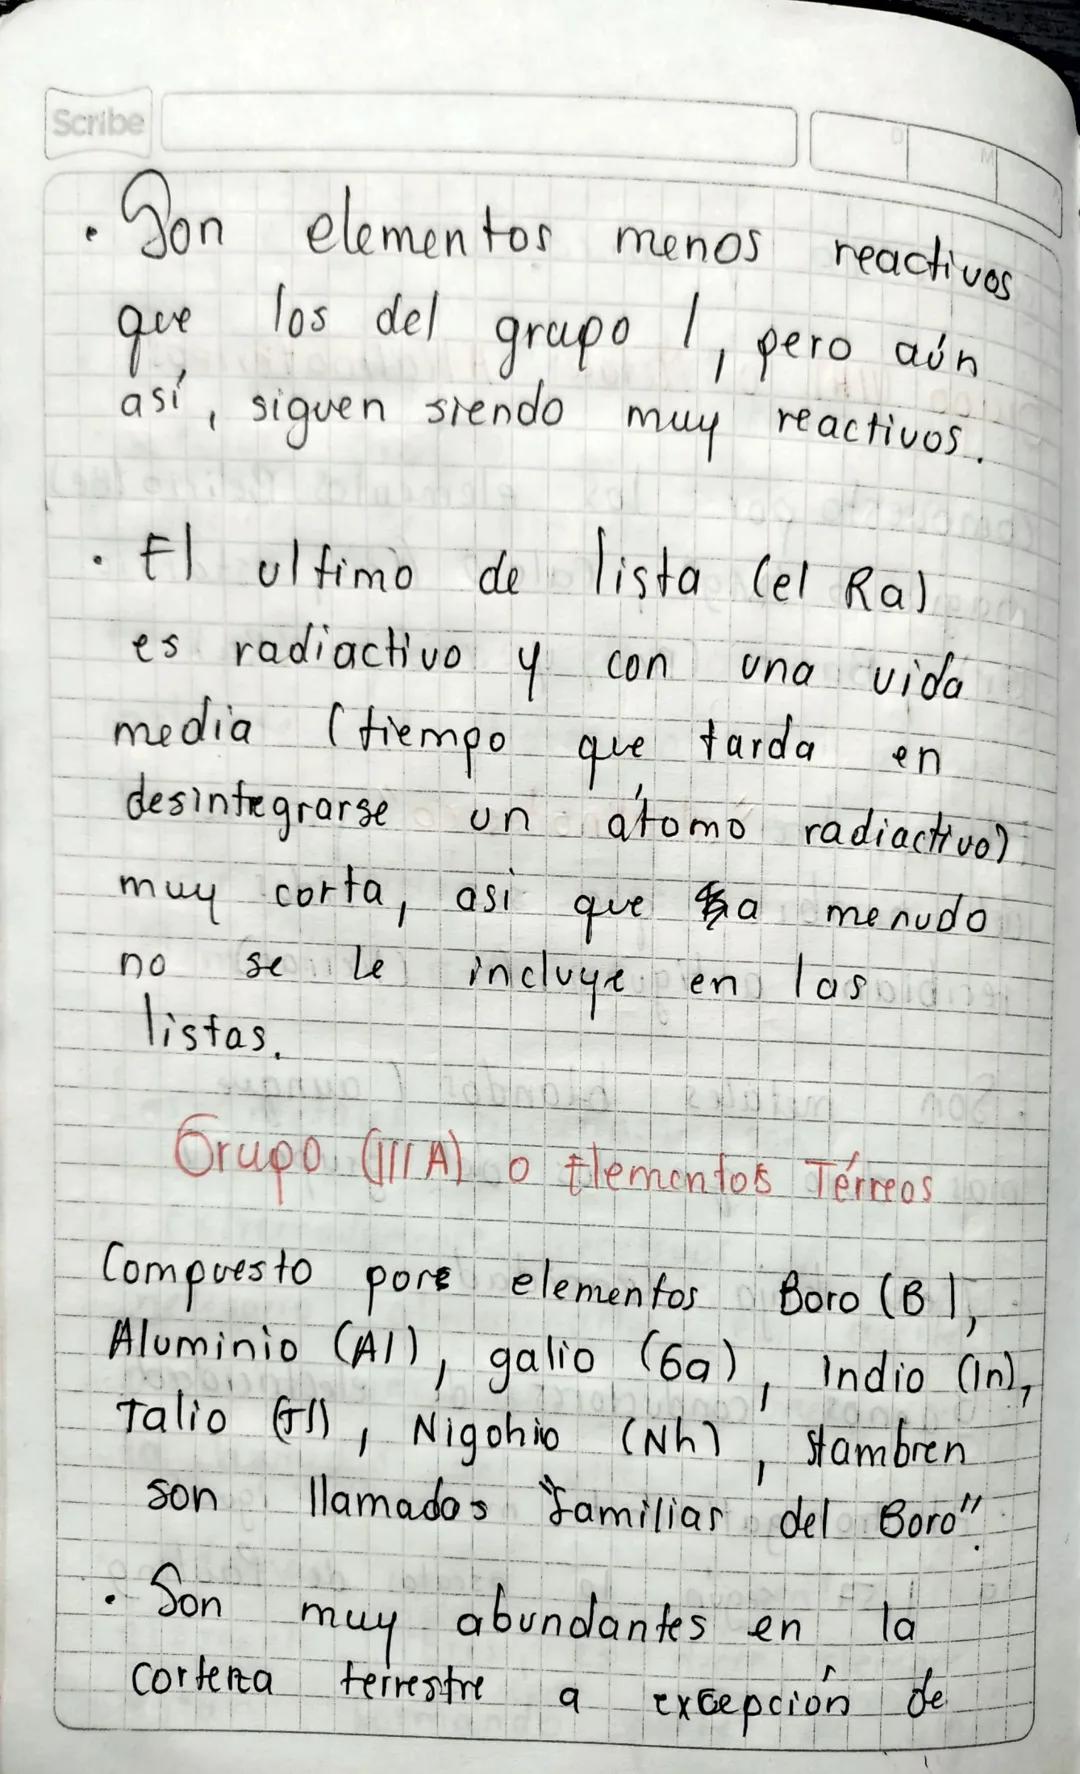 Scribe
D
M
. Son elementos menos reactivos
que los del grupo 1, pero aún
así, siguen siendo muy reactivos.
. El ultimo de lista (el Ra)
es radiactivo y con una vida
media (tiempo que tarda en
desintegrarse un átomo radiactivo)
muy corta, asi que a menudo
no se le incluye en las
listas.
Grupo (III A) o Elementos Térreos
Compuesto por elementos Boro (B),
Aluminio (Al), galio (Ga), Indio (In),
Talio (Tl), Nigohio (Nh), tambren
son llamados "familias del Boro".
. Son muy abundantes en la
corteza terrestre a excepción de